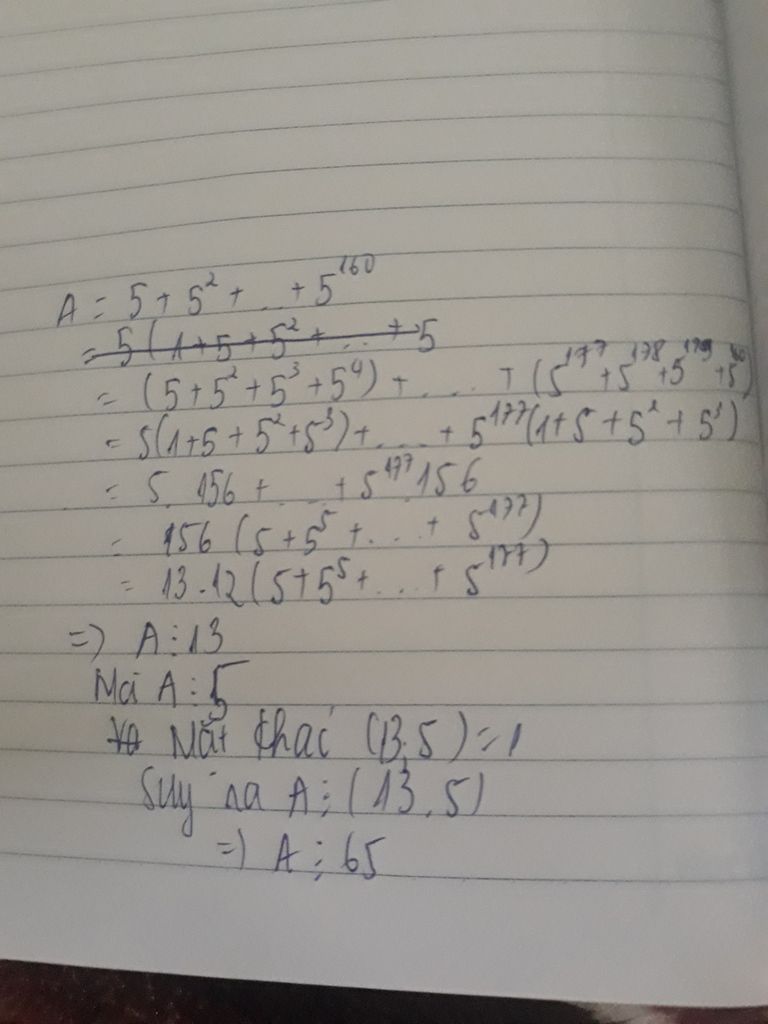 A = 5 + 5² + ... + 5¹⁶⁰
= 5(1 + 5 + 5² + ... + 5
= (5 + 5² + 5³ + 5⁴) + ..... + (5¹⁷⁷ + 5¹⁷⁸ + 5¹⁷⁹ + 5)
= 5(1 + 5 + 5² + 5³) + ..... + 5¹⁷⁷(1 + 5 + 5² + 5³)
= 5. 156 + .... + 5¹⁷⁷ 156
= 156 (5 + 5⁵ + ... + 5¹⁷⁷)
= 13.12(5 + 5⁵ + ... + 5¹⁷⁷)
=) A ⋮ 13
Mà A ⋮ 5
Mặt khác (13,5) = 1
Suy ra A ⋮ (13.5)
=) A ⋮ 65